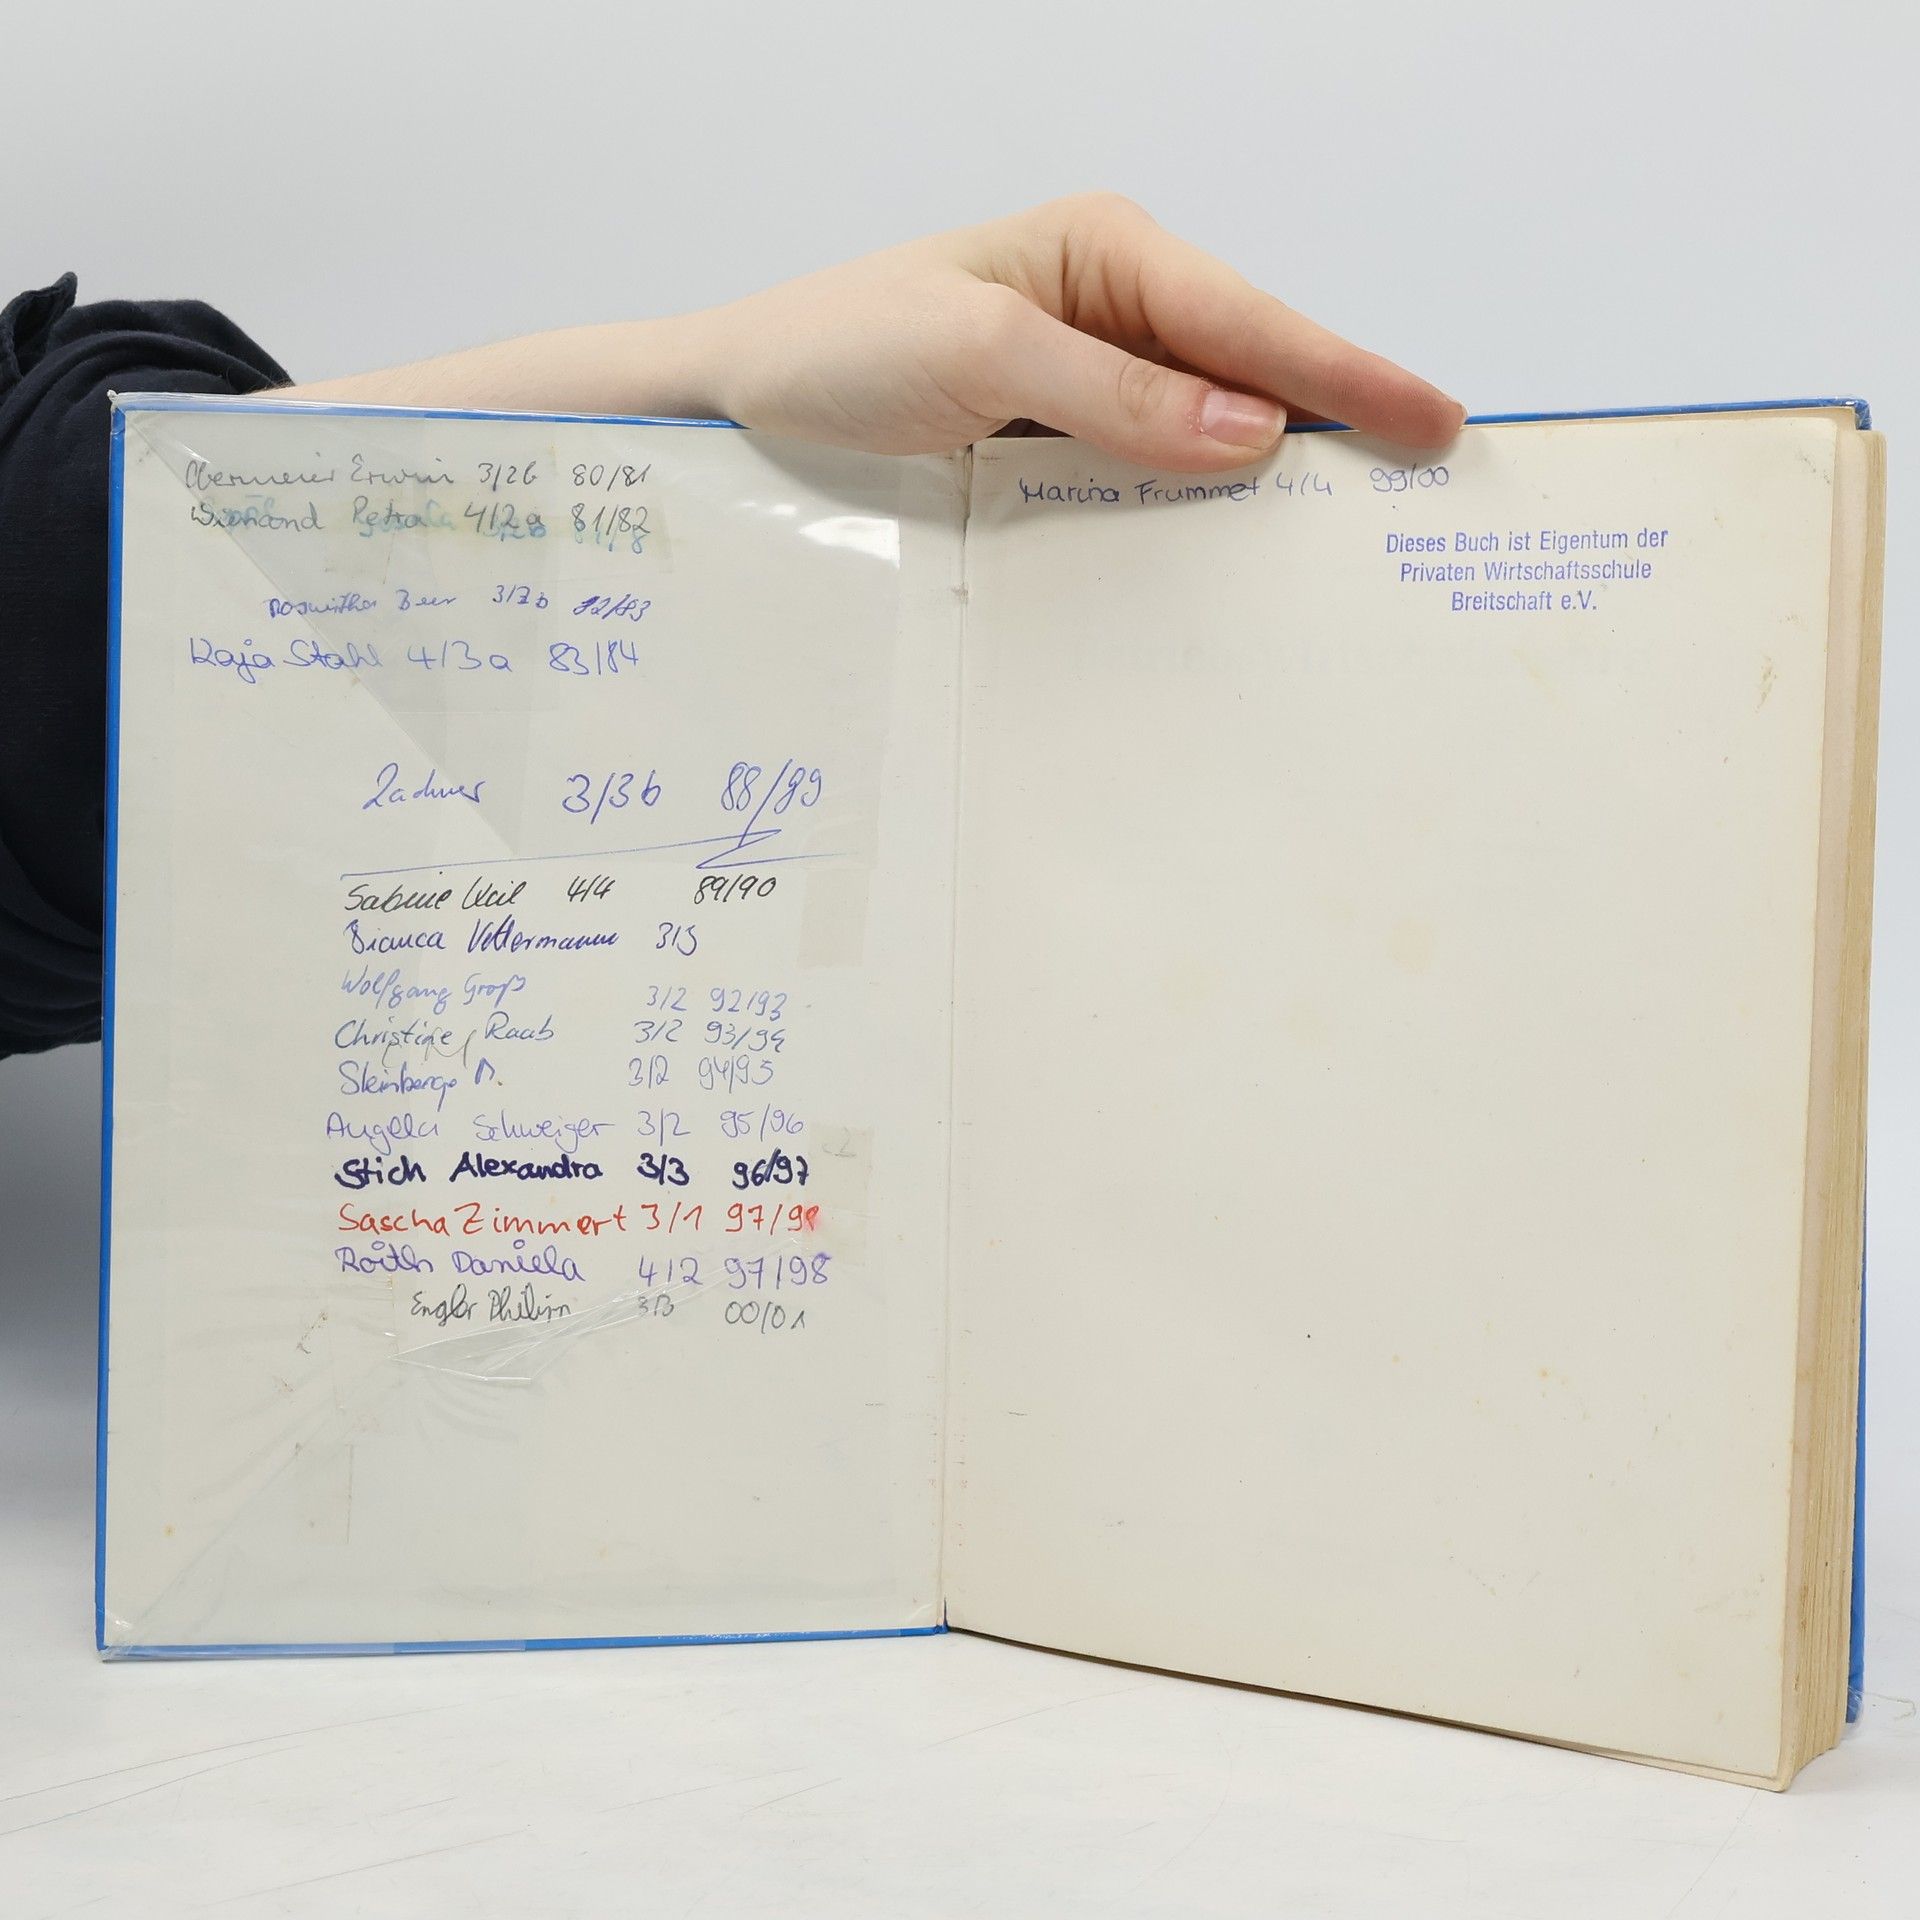 Obermeier Erwin 3/2b 80/81
Wienand Petra 4/2a 81/82
Roswitha Beer 3/2b 82/83
Kaja Stahl 4/3a 83/84
3/3b 88/89
Sabine Keil 4/4 89/90
Bianca Vettermann 3/3
Wolfgang Groß 3/2 92/93
Christine Raab 3/2 93/94
3/2 94/95
Angela Schweiger 3/2 95/96
Stich Alexandra 3/3 96/97
Sascha Zimmert 3/1 97/98
Roith Daniela 4/2 97/98
Engler Philipp 00/01
Marina Frummet 4/4 99/00
Dieses Buch ist Eigentum der
Privaten Wirtschaftsschule
Breitschaft e.V.